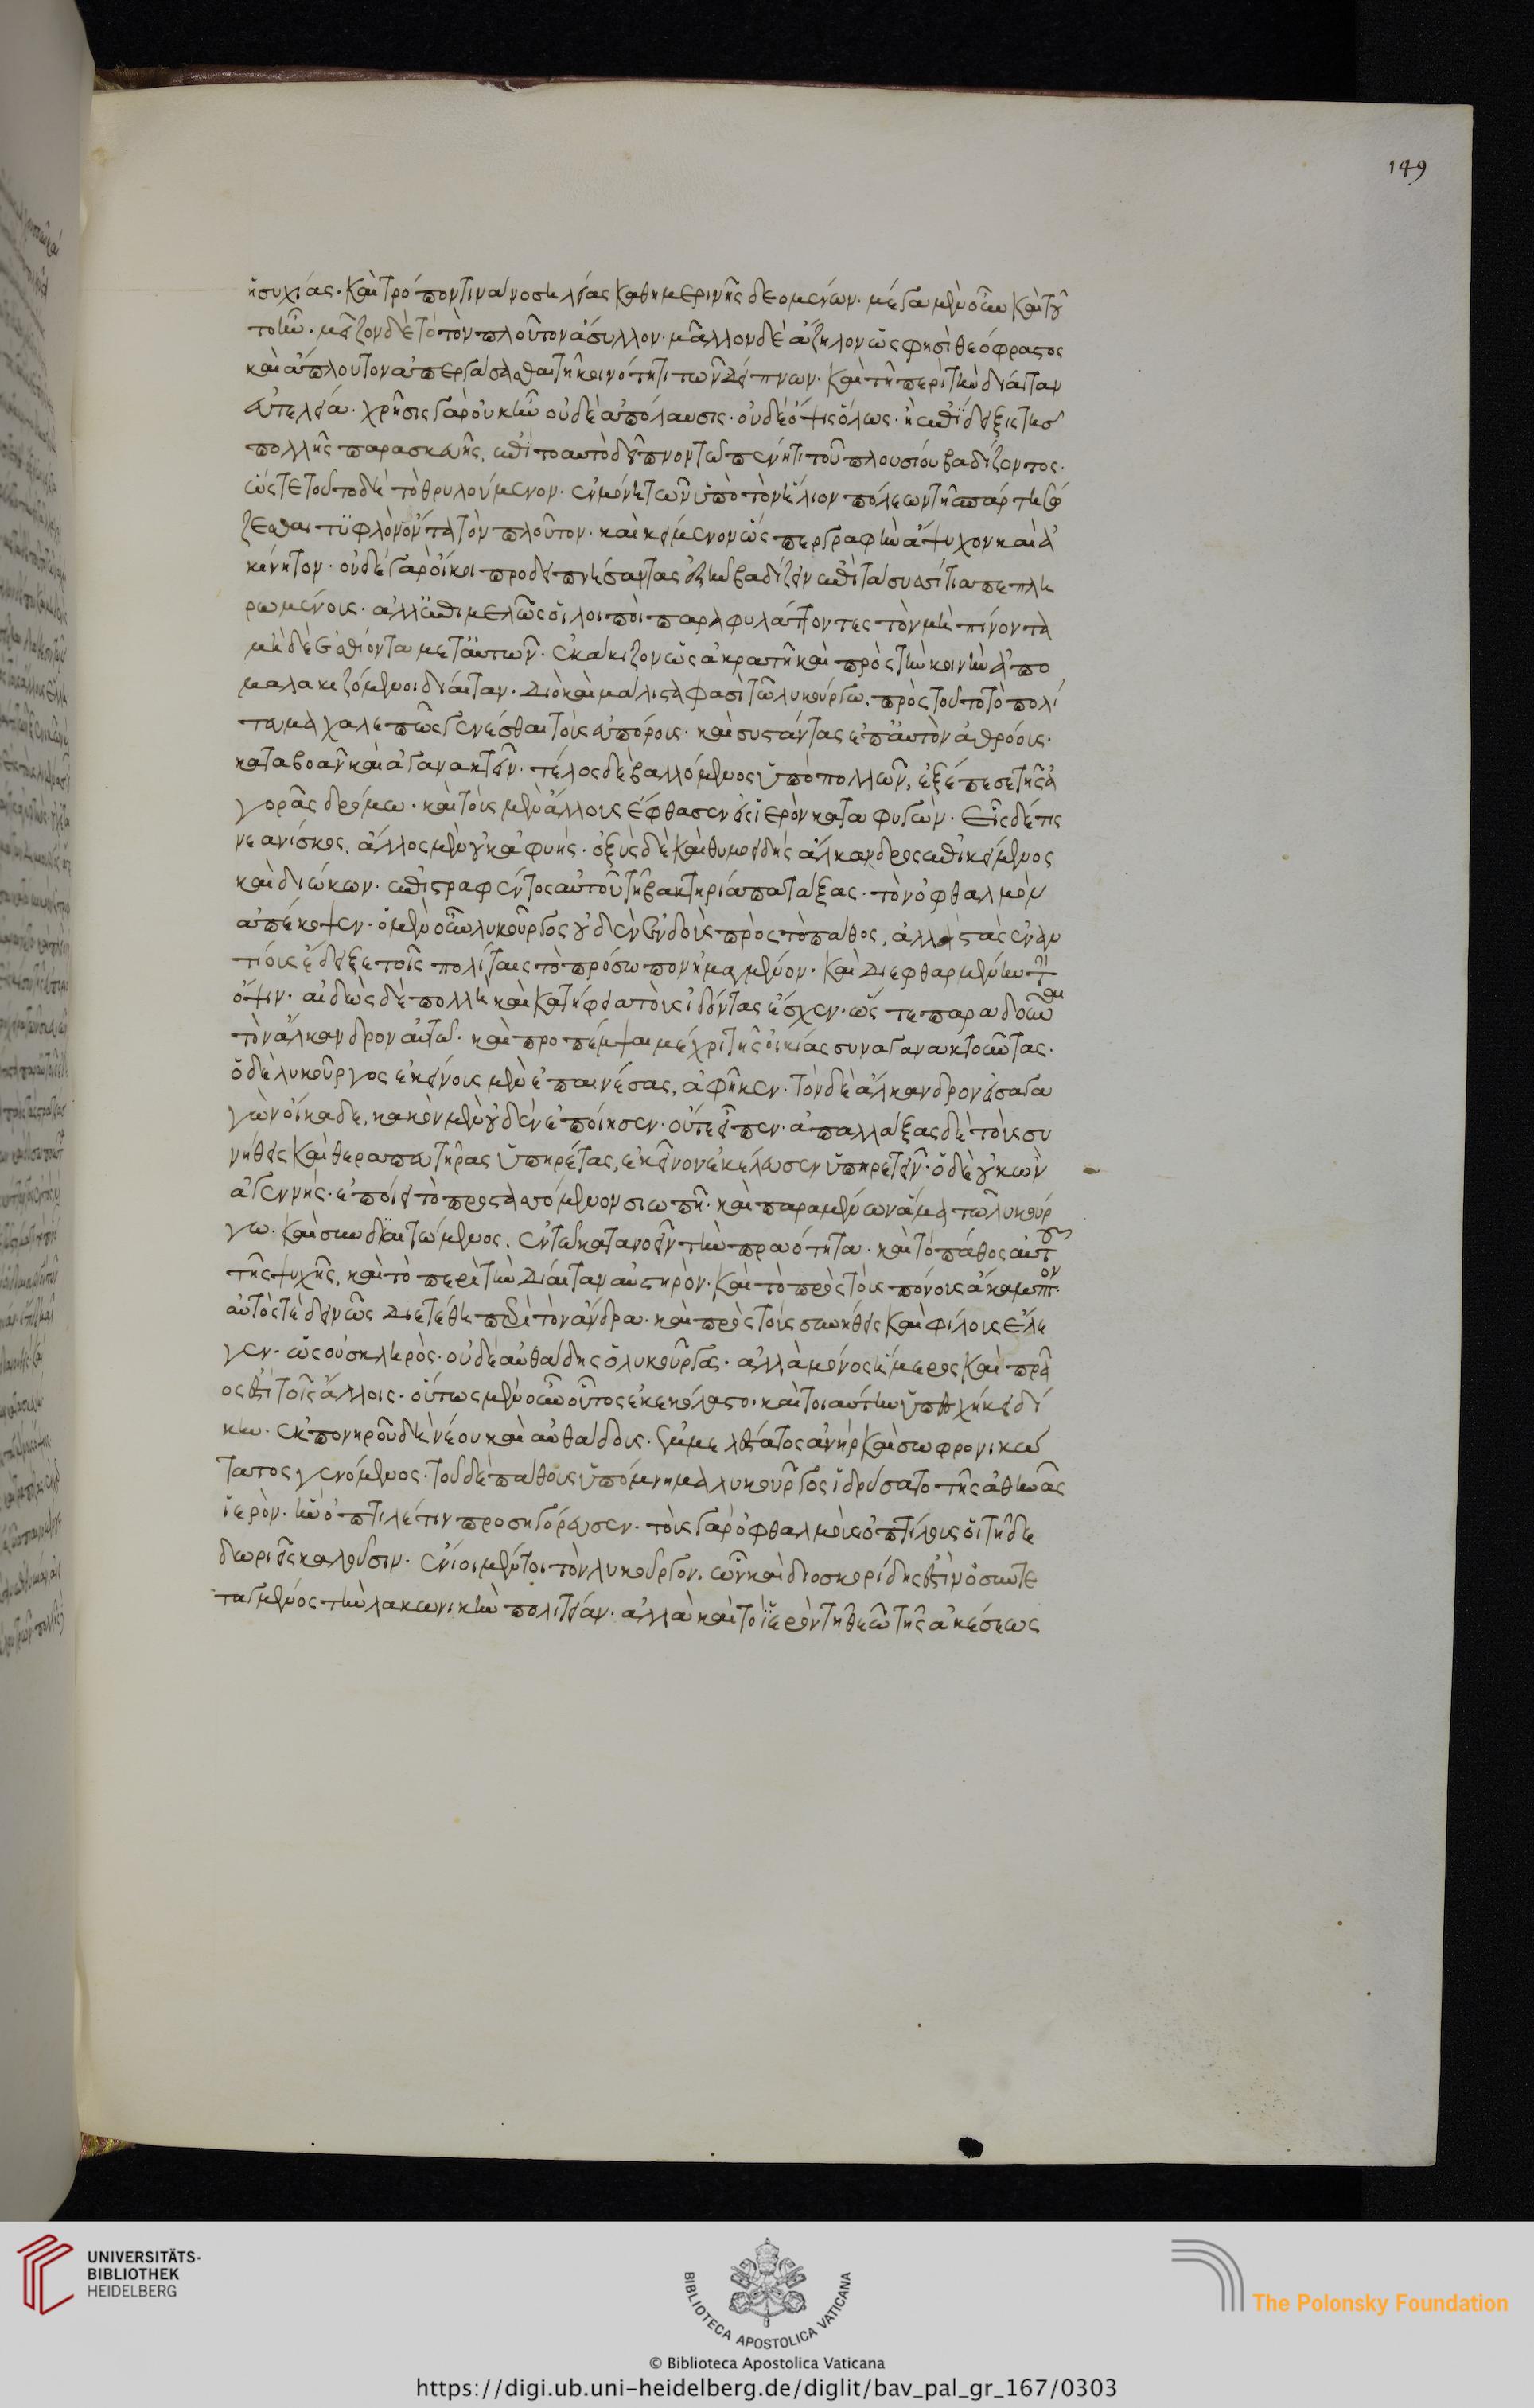 149
ἡσυχίας· καὶ τρόπον τινὰ νοσηλείας καθημερινῆς δεομένων· μέγα μὲν οὖν καὶ τοῦ
το ἦν· μεῖζον δὲ τὸ τὸν πλοῦτον ἄσυλλον· μᾶλλον δὲ ἄζηλον ὥς φησὶ θεόφραστος
καὶ ἄπλουτον ἀπεργάσασθαι τῇ κοινότητι τῶν δείπνων· καὶ τῇ περὶ τὴν δίαιταν
εὐτελεία· χρῆσις γὰρ οὐκ ἦν οὐδὲ ἀπόλαυσις· οὐδὲ ὄψις ὅλως· ἢ ἐπίδειξις τῆς
πολλῆς παρασκευῆς, ἐπὶ τὸ αὐτὸ δεῖπνον τῷ πένητι τοῦ πλουσίου βαδίζοντος·
ὥστε τοῦτο δὴ τὸ θρυλούμενον· ἐν μόνῃ τῶν ὑπὸ τὸν ἥλιον πόλεων τῇ σπάρτῃ σώ
ζεσθαι τυφλὸν ὄντα τὸν πλοῦτον· καὶ κείμενον ὥσπερ γραφὴν ἄψυχον καὶ ἀ
κίνητον· οὐδὲ γὰρ οἴκοι προδειπνήσαντας ἐξῆν βαδίζειν ἐπὶ τὰ συσσίτια πεπλη
ρωμένοις· ἀλλ' ἐπιμελῶς οἱ λοιποὶ παραφυλάττοντες τὸν μὴ πίνοντα
μηδὲ ἐσθίοντα μετ' αὐτῶν· ἐκάκιζον ὡς ἀκρατῆ καὶ πρὸς τὴν κοινὴν ἀπο
μαλακιζόμενοι δίαιταν· διὸ καὶ μάλιστα φασὶ τῷ λυκούργω· πρὸς τοῦτο τὸ πολί
τευμα χαλεπῶς γενέσθαι τοὺς εὐπόρους· καὶ συστάντας ἐπ' αὐτὸν ἀθρόους·
καταβοᾶν καὶ ἀγανακτεῖν· τέλος δὲ βαλλόμενος ὑπὸ πολλῶν, ἐξέπεσε τῆς ἀ
γορᾶς δρόμω· καὶ τοὺς μὲν ἄλλους ἔφθασεν εἰς ἱερὸν καταφυγών· εἷς δέ τις
νεανίσκος, ἄλλως μὲν οὐκ ἀφυὴς· ὀξὺς δὲ καὶ θυμοειδὴς ἄλκανδρος ἐπικείμενος
καὶ διώκων· ἐπιστραφέντος αὐτοῦ τῇ βακτηρία πατάξας· τὸν ὀφθαλμὸν
ἀπέκοψεν· ὁ μὲν οὖν λυκοῦργος οὐδὲν ἐνδοὺς πρὸς τὸ πάθος, ἀλλὰ στὰς ἐναν
τίος ἔδειξε τοῖς πολίταις τὸ πρόσωπον ἡμαγμένον· καὶ διεφθαρμένην τὴν
ὄψιν· αἰδὼς δὲ πολλὴ καὶ κατήφεια τοὺς ἰδόντας ἔσχεν· ὥς τε παραδοῦναι
τὸν ἄλκανδρον αὐτῷ· καὶ προπέμψαι μέχρι τῆς οἰκίας συναγανακτοῦντας·
ὁ δὲ λυκοῦργος ἐκείνους μὲν ἐπαινέσας, ἀφῆκεν· τὸν δὲ ἄλκανδρον εἰσαγα
γὼν οἴκαδε, κακὸν μὲν οὐδὲν ἐποίησεν· οὔτε εἶπεν· ἀπαλλάξας δὲ τοὺς συ
νήθεις καὶ θεραπευτῆρας ὑπηρέτας, ἐκεῖνον ἐκέλευσεν ὑπηρετεῖν· ὁ δὲ οὐκ ὢν
ἀγεννὴς· ἐποίει τὸ προστασσόμενον σιωπῆ· καὶ παραμένων ἅμα τῷ λυκούρ
γω· καὶ συνδιαιτώμενος, ἐν τῷ κατανοεῖν τὴν πραότητα· καὶ τὸ πάθος αὐτοῦ
τῆς ψυχῆς, καὶ τὸ περὶ τὴν δίαιταν αὐστηρὸν· καὶ τὸ πρὸς τοὺς πόνους ἄκαμπτον·
αὐτός τε δεινῶς διετέθη περὶ τὸν ἄνδρα· καὶ πρὸς τοὺς συνήθεις καὶ φίλους ἔλε
γεν· ὡς οὐ σκληρὸς· οὐδὲ αὐθάδης ὁ λυκοῦργος· ἀλλὰ μόνος ἥμερος καὶ πρᾶ
ός ἐστι τοῖς ἄλλοις· οὕτως μὲν οὖν οὗτος ἐκεκόλαστο· καὶ τοιαύτην ὑπεσχήκει δί
κην· ἐκ πονηροῦ δὴ νέου καὶ αὐθάδους· ἐμμελέστατος ἀνὴρ καὶ σωφρονικώ
τατος γενόμενος· τοῦ δὲ πάθους ὑπόμνημα λυκοῦργος ἱδρύσατο τῆς ἀθηνᾶς
ἱερὸν· ἣν ὀπτιλέτιν προσηγόρευσεν· τοὺς γὰρ ὀφθαλμοὺς ὀπτίλους οἱ τῇδε
δωριεῖς καλοῦσιν· ἔνιοι μέντοι τὸν λυκοῦργον, ὧν καὶ διοσκορίδης ἐστὶν ὁ συντε
ταγμένος τὴν λακωνικὴν πολιτείαν· ἀλλὰ καὶ τὸ ἱερὸν τῇ θεῷ τῆς ἀκέσεως
UNIVERSITÄTS-
BIBLIOTHEK
HEIDELBERG
BIBLIOTECA APOSTOLICA VATICANA
The Polonsky Foundation
© Biblioteca Apostolica Vaticana
https://digi.ub.uni-heidelberg.de/diglit/bav_pal_gr_167/0303